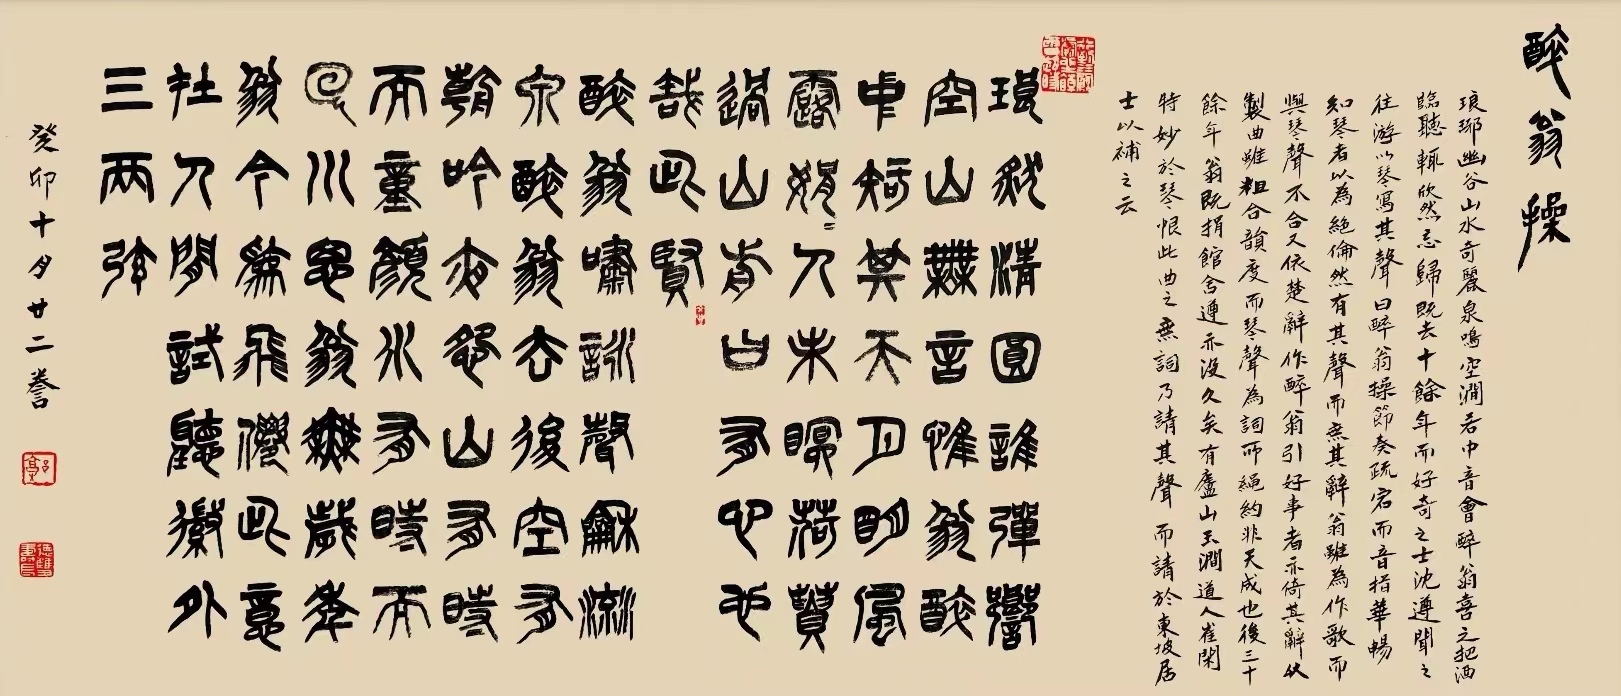 醉翁操
琅琊幽谷山水奇麗泉鳴空澗若中音會醉翁喜之把酒
臨聽輒欣然忘歸既去十餘年而好奇之士沈遵聞之
往游以琴寫其聲曰醉翁操節奏疏宕而音指華暢
知琴者以為絕倫然有其聲而無其辭翁雖為作歌而
與琴聲不合又依楚辭作醉翁引好事者亦倚其辭以
製曲雖粗合韻度而琴聲為詞所繩約非天成也後三十
餘年翁既捐館舍遵亦沒久矣有廬山玉澗道人崔閑
特妙於琴恨此曲之無詞乃請其聲而請於東坡居
士以補之云
琅然清圓誰彈響
空山無言惟翁醉
中知其天月明風
露娟〻人未眠荷蕡
過山前曰有心也
哉此賢
醉翁嘯詠聲和流
泉醉翁去後空有
朝吟夜怨山有時
而童顛水有時而
回川思翁無歲年
翁今為飛僊此意
在人間試聽徽外
三兩弦
癸卯十月廿二誊